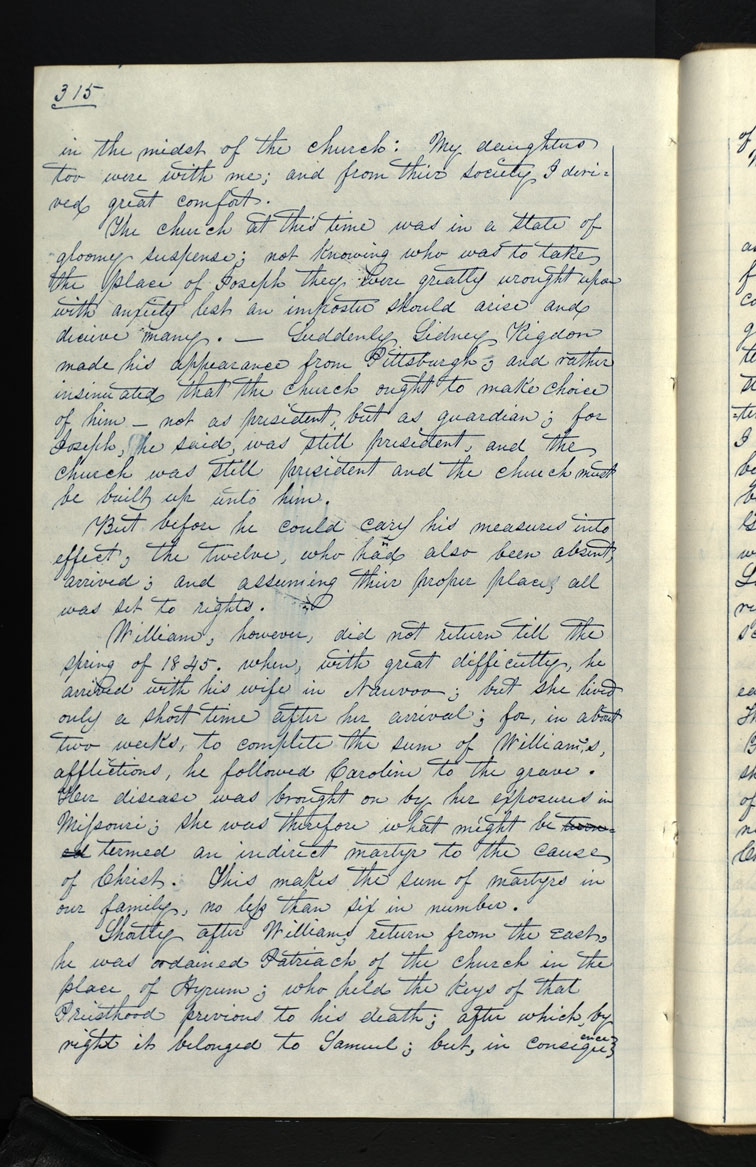 315
in the midst of the church: My daughters
too were with me; and from thier society I deri=
ved great comfort.
The church at this time was in a state of
gloomy suspense; not knowing who was to take
the place of Joseph they were greatly wrought upon
with anxiety lest an imposter should arise and
decieve many. — Suddenly Sidney Rigdon
made his appearance from Pittsburgh; and rather
insinuated that the church ought to make choice
of him — not as president, but as guardian; for
Joseph, he said, was still president, and the
church was still president and the church must
be built up unto him.
But before he could cary his measures into
effect; the twelve, who had also been absent,
arrived; and assuming thier proper places all
was set to rights.
William, however, did not return till the
spring of 1845. when, with great difficulty, he
arrived with his wife in Nauvoo; but she lived
only a short time after her arrival; for, in about
two weeks, to complete the sum of William,s,
afflictions, he followed Caroline to the grave.
Her disease was brought on by her exposures in
Missouri; she was therefore what might be
termed an indirect martyr to the cause
of Christ. This makes the sum of martyrs in
our family, no less than six in number.
Shortly after Williams return from the east,
he was ordained Patriach of the church in the
place of Hyrum; who held the keys of that
Priesthood previous to his death; after which, by
right it belonged to Samuel; but, in consequence